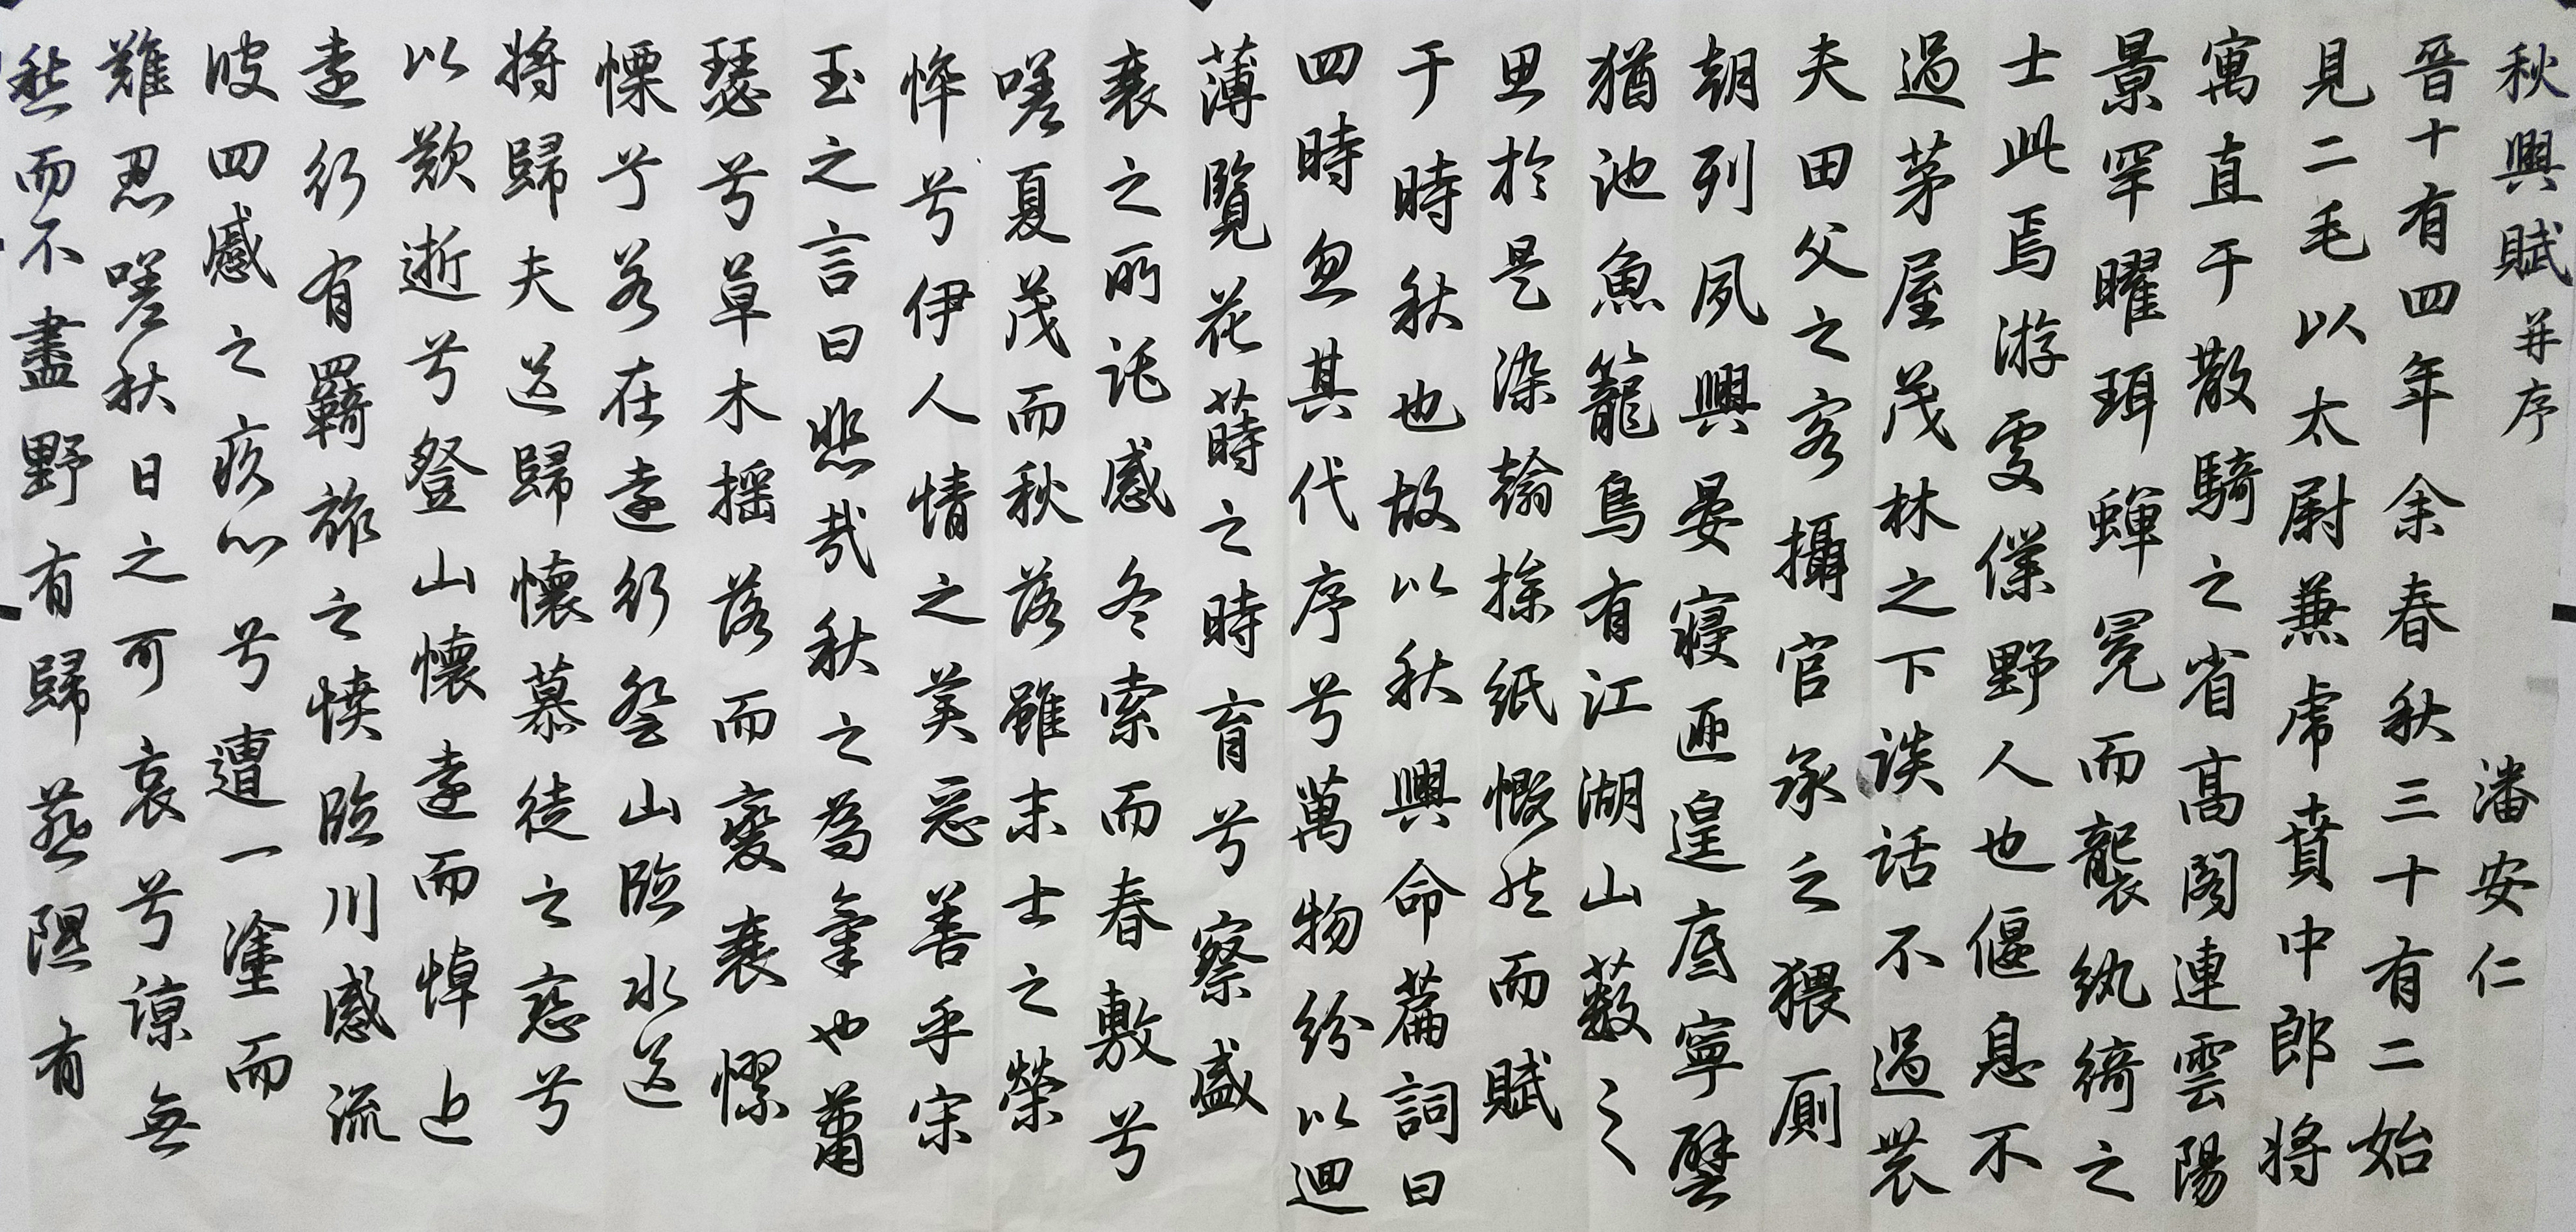 秋興賦并序 潘安仁
晉十有四年余春秋三十有二始
見二毛以太尉兼虎賁中郎將
寓直于散騎之省高閣連雲陽
景罕曜珥蟬冕而襲紈綺之
士此焉游處僕野人也偃息不
過茅屋茂林之下談話不過農
夫田父之客攝官承之猥廁
朝列夙興晏寢匪遑底寧譬
猶池魚籠鳥有江湖山藪之
思於是染翰操紙慨然而賦
于時秋也故以秋興命篇詞曰
四時忽其代序兮萬物紛以迴
薄覽花蒔之時育兮察盛
衰之所託感冬索而春敷兮
嗟夏茂而秋落雖末士之榮
悴兮伊人情之美惡善乎宋
玉之言曰悲哉秋之為氣也蕭
瑟兮草木搖落而變衰憀
慄兮若在遠行登山臨水送
將歸夫送歸懷慕徒之戀兮
遠行有羈旅之憤臨川感流
以歎逝兮登山懷遠而悼近
彼四慼之疚心兮遭一塗而
難忍嗟秋日之可哀兮諒無
愁而不盡野有歸燕隰有